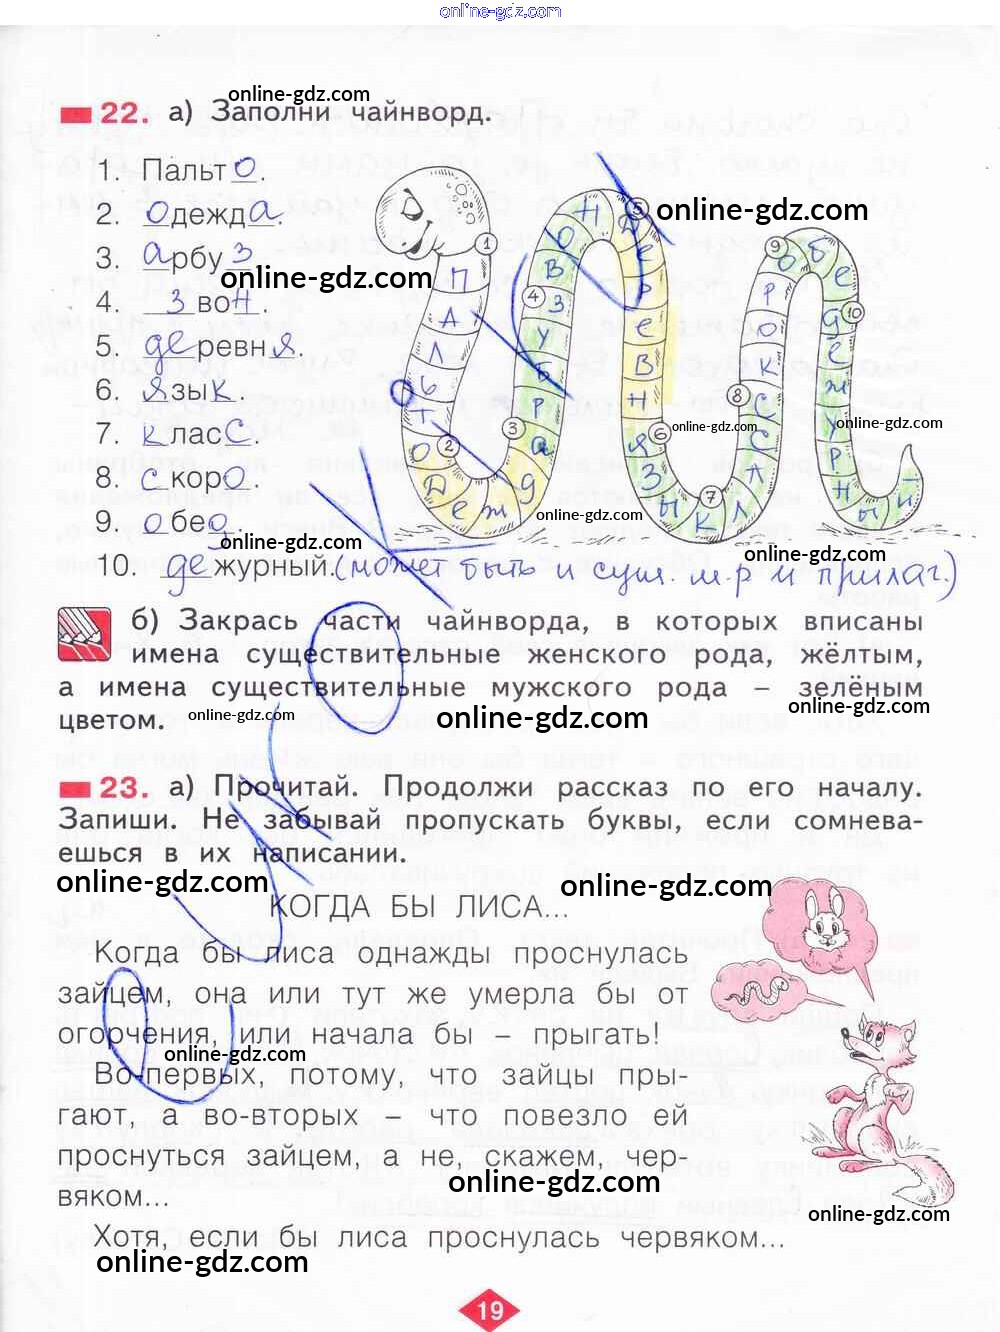 online-gdz.com
online-gdz.com
22. а) Заполни чайнворд.
1. Пальто.
2. одежда.
online-gdz.com
3. арбуз
online-gdz.com
4. звон.
5. деревня.
6. язык.
7. класс.
8. скоро.
9. обед
online-gdz.com
10. дежурный. (может быть и сущ. м.р и прилаг.)
1 2 3 4 5 6 7 8 9 10
online-gdz.com
online-gdz.com
online-gdz.com
online-gdz.com
б) Закрась части чайнворда, в которых вписаны
имена существительные женского рода, жёлтым,
а имена существительные мужского рода – зелёным
цветом.
online-gdz.com
online-gdz.com
online-gdz.com
23. а) Прочитай. Продолжи рассказ по его началу.
Запиши. Не забывай пропускать буквы, если сомнева-
ешься в их написании.
online-gdz.com
online-gdz.com
КОГДА БЫ ЛИСА...
Когда бы лиса однажды проснулась
зайцем, она или тут же умерла бы от
огорчения, или начала бы – прыгать!
online-gdz.com
Во-первых, потому, что зайцы пры-
гают, а во-вторых – что повезло ей
проснуться зайцем, а не, скажем, чер-
вяком...
online-gdz.com
online-gdz.com
Хотя, если бы лиса проснулась червяком...
online-gdz.com
19